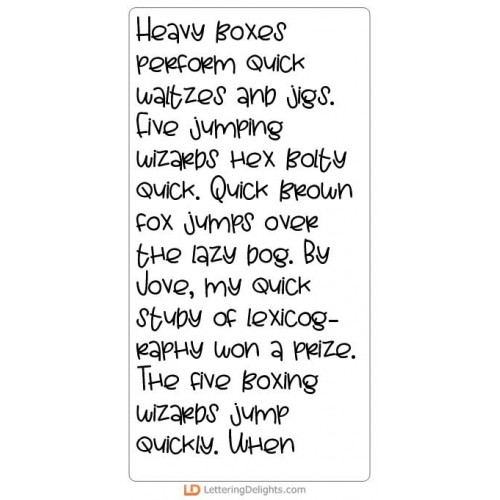 Heavy boxes
perform quick
waltzes and jigs.
Five jumping
wizards hex bolty
quick. Quick brown
fox jumps over
the lazy dog. By
Jove, my quick
study of lexicog-
raphy won a prize.
The five boxing
wizards jump
quickly. When
LD LetteringDelights.com